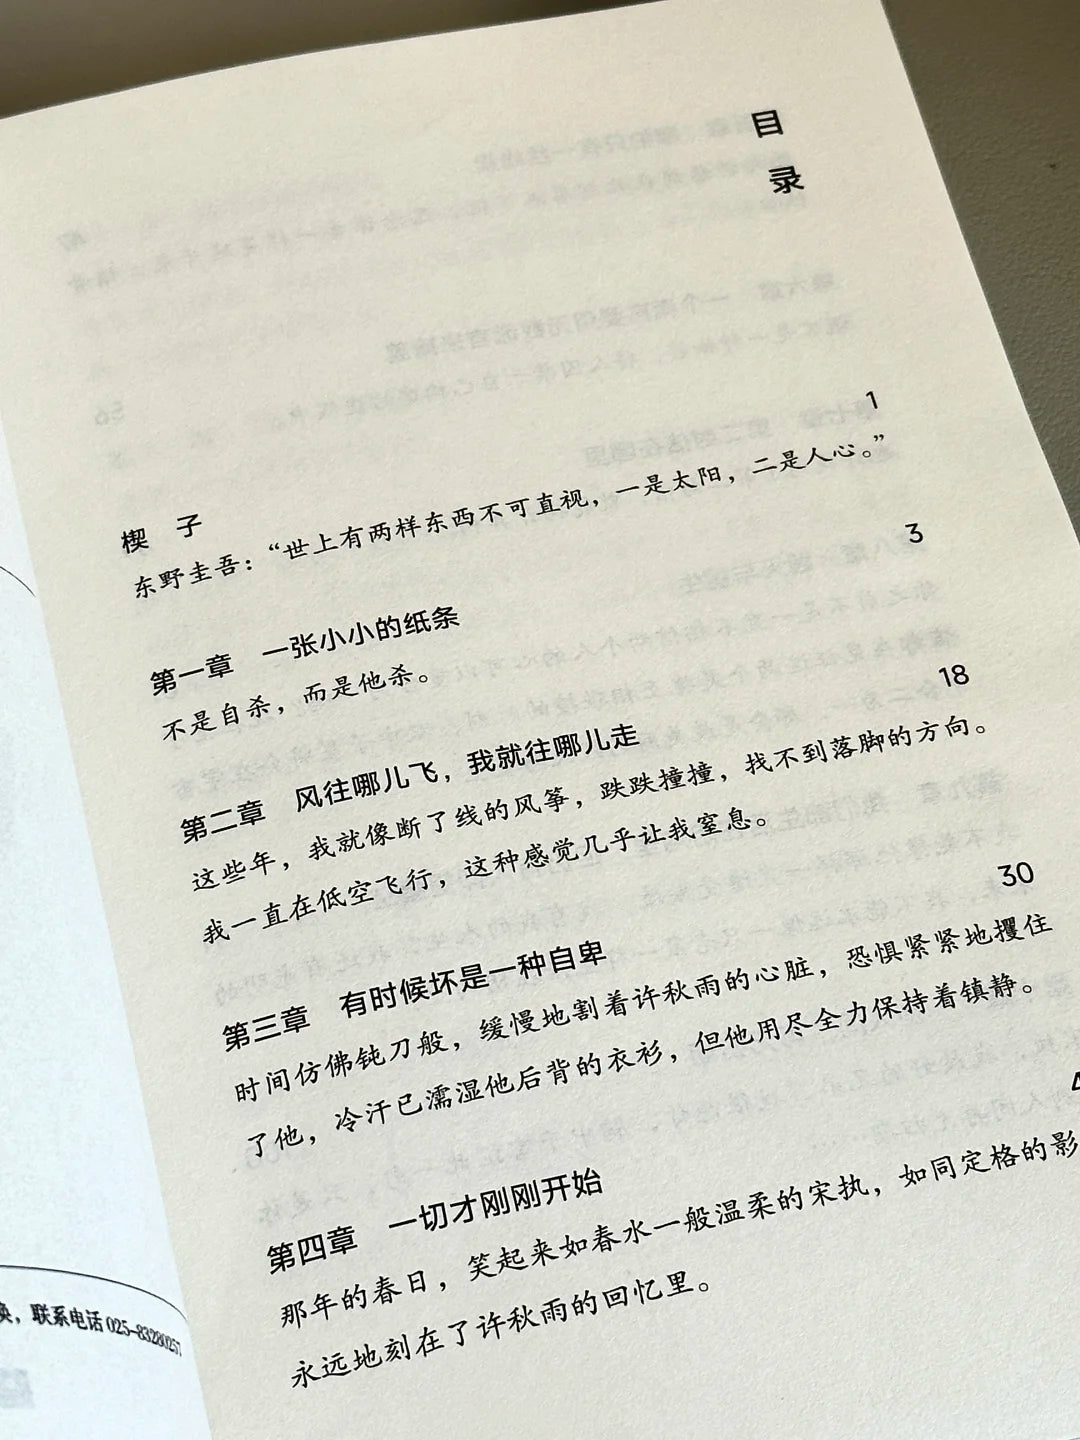 目
录
楔 子 1
东野圭吾：“世上有两样东西不可直视，一是太阳，二是人心。”
第一章 一张小小的纸条 3
不是自杀，而是他杀。
第二章 风往哪儿飞，我就往哪儿走 18
这些年，我就像断了线的风筝，跌跌撞撞，找不到落脚的方向。
我一直在低空飞行，这种感觉几乎让我窒息。
第三章 有时候坏是一种自卑 30
时间仿佛钝刀般，缓慢地割着许秋雨的心脏，恐惧紧紧地攫住
了他，冷汗已濡湿他后背的衣衫，但他用尽全力保持着镇静。
第四章 一切才刚刚开始
那年的春日，笑起来如春水一般温柔的宋执，如同定格的影
永远地刻在了许秋雨的回忆里。
换，联系电话 025-83280257